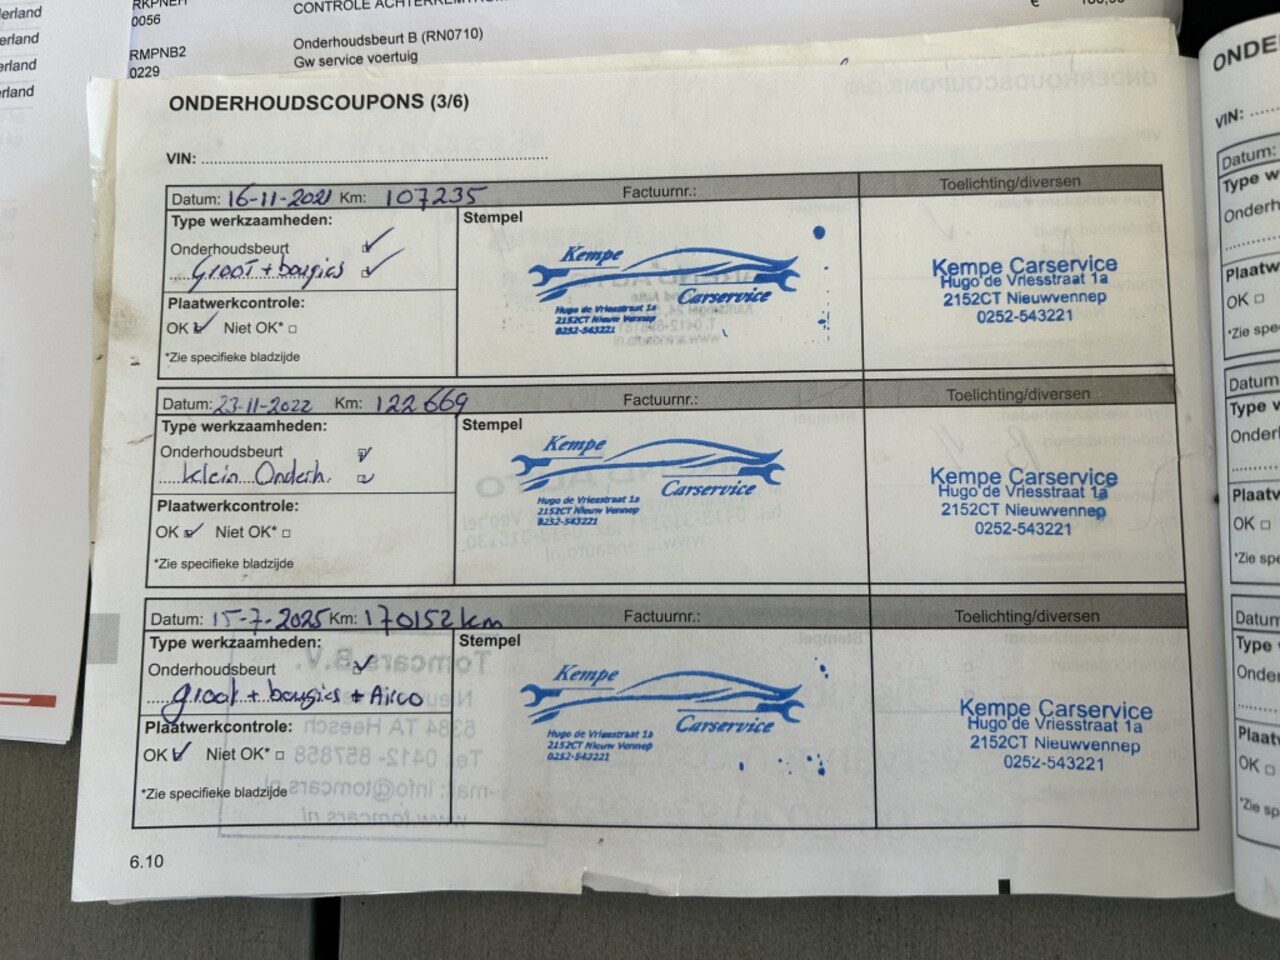 erland
erland
erland
erland
0056
CONTROLE
RMPNB2
0229
Onderhoudsbeurt B (RN0710)
Gw service voertuig
€
ONDERHOUDSCOUPONS (3/6)
VIN:
Datum: 16-11-2021 Km: 107235 Factuurnr.: Toelichting/diversen
Type werkzaamheden: Stempel
Onderhoudsbeurt
Groot + bougies
Plaatwerkcontrole:
OK Niet OK*
*Zie specifieke bladzijde
Kempe
Carservice
Hugo de Vriesstraat 1a
2152CT Nieuw Vennep
0252-543221
Kempe Carservice
Hugo de Vriesstraat 1a
2152CT Nieuwvennep
0252-543221
Datum: 23-11-2022 Km: 122669 Factuurnr.: Toelichting/diversen
Type werkzaamheden: Stempel
Onderhoudsbeurt
Klein Onderh.
Plaatwerkcontrole:
OK Niet OK*
*Zie specifieke bladzijde
Kempe
Carservice
Hugo de Vriesstraat 1a
2152CT Nieuw Vennep
0252-543221
Kempe Carservice
Hugo de Vriesstraat 1a
2152CT Nieuwvennep
0252-543221
Datum: 15-7-2025 Km: 170152 km Factuurnr.: Toelichting/diversen
Type werkzaamheden: Stempel
Onderhoudsbeurt
groot + bougies + Airco
Plaatwerkcontrole:
OK Niet OK*
*Zie specifieke bladzijde
Kempe
Carservice
Hugo de Vriesstraat 1a
2152CT Nieuw Vennep
0252-543221
Kempe Carservice
Hugo de Vriesstraat 1a
2152CT Nieuwvennep
0252-543221
6.10
ONDE
VIN:
Datum:
Type w
Onderh
Plaatw
OK
*Zie spe
Datum
Type w
Onderl
Plaatv
OK
*Zie spe
Datum
Type
Onde
Plaat
OK
*Zie sp